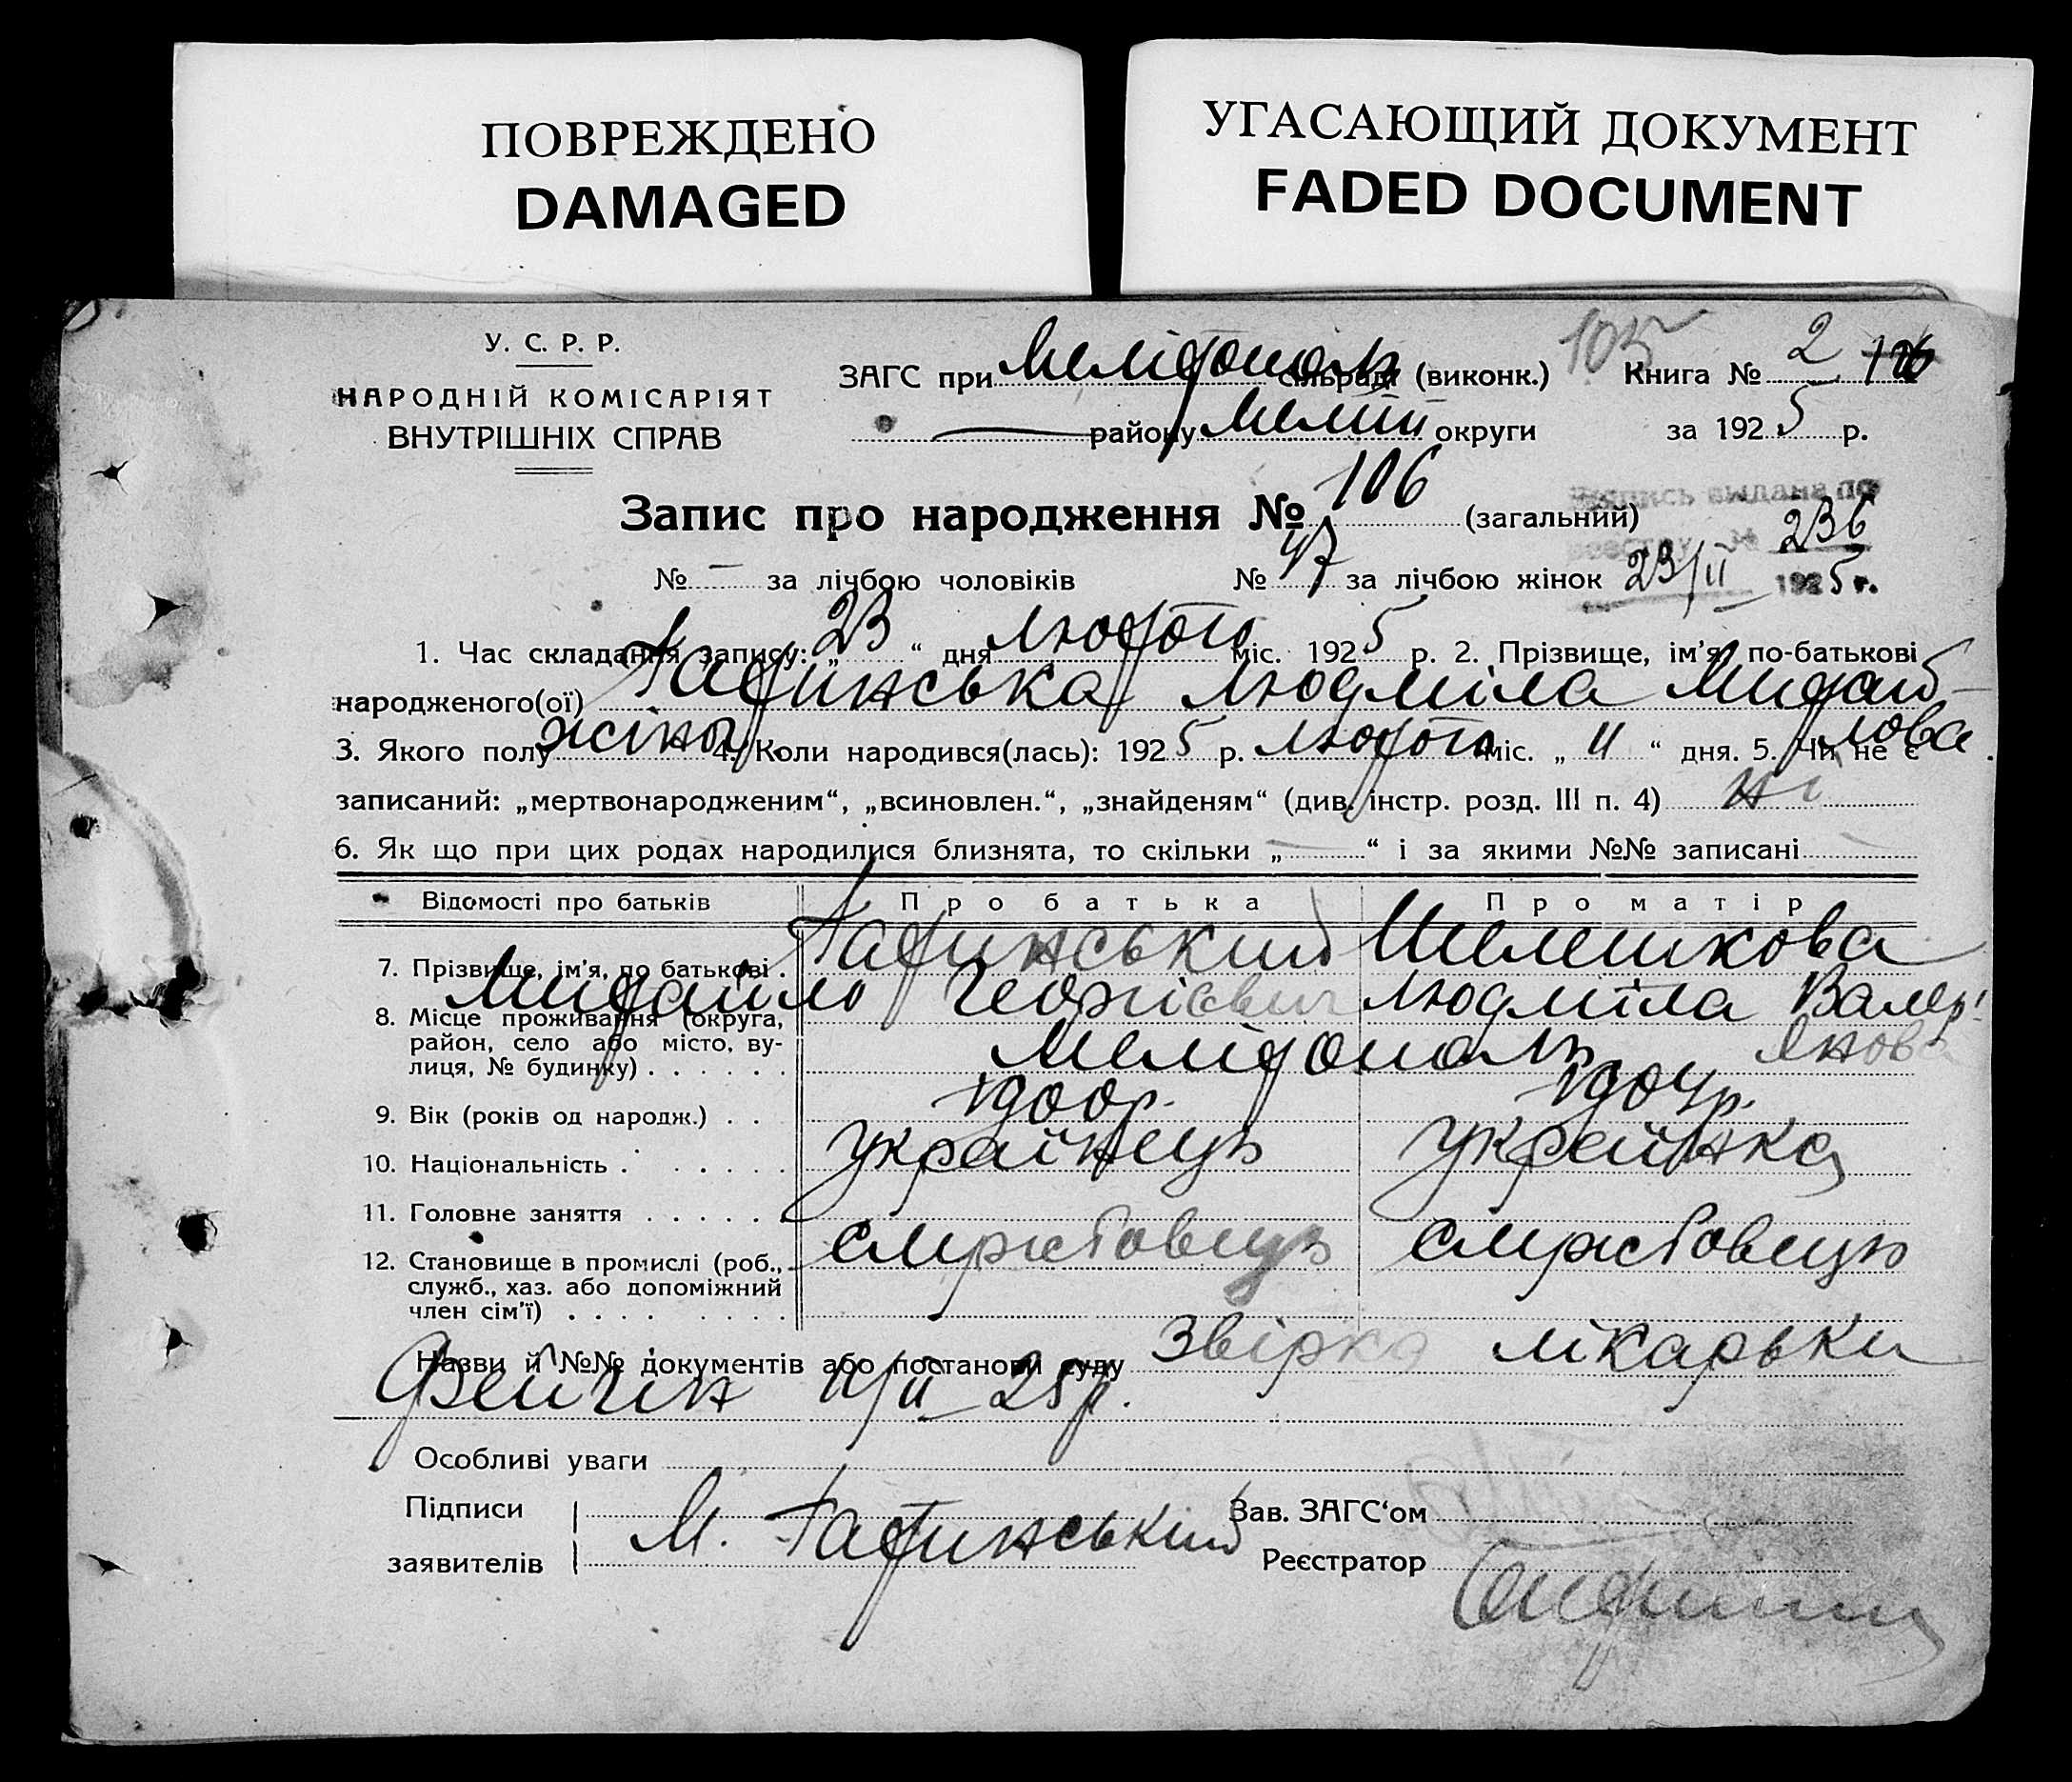 ПОВРЕЖДЕНО
DAMAGED
УГАСАЮЩИЙ ДОКУМЕНТ
FADED DOCUMENT
У. С. Р. Р.
НАРОДНІЙ КОМІСАРІЯТ
ВНУТРІШНІХ СПРАВ
ЗАГС при Мелітополь сільраді (виконк.) 105 Книга № 2
району Меліт округи за 1925 р.
Запис про народження № 106 (загальний)
Запись выдана по
№ 236
№ — за лічбою чоловіків № 47 за лічбою жінок 23/II 1925 г.
1. Час складання запису: „23“ дня лютого міс. 1925 р. 2. Прізвище, ім'я, по-батькові
народженого(ої) Татинська Людміла Михай-
лова
3. Якого полу жіноч. 4. Коли народився(лась): 1925 р. лютого міс. „11“ дня. 5. Чи не є
записаний: „мертвонародженим“, „всиновлен.“, „знайденям“ (див. інстр. розд. III п. 4) ні
6. Як що при цих родах народилися близнята, то скільки „—“ і за якими №№ записані
Відомості про батьків Про батька Про матір
7. Прізвище, ім'я, по батькові . Татинський Шелешкова
Михайло Георгієвич Людміла Валер'
янова
8. Місце проживання (округа,
район, село або місто, ву-
лиця, № будинку) . . . . . . Мелітополь
9. Вік (років од народж.) . . 1900р. 1904р.
10. Національність . . . . . . українець українка
11. Головне заняття . . . . . .
12. Становище в промислі (роб.,
служб., хаз. або допоміжний
член сім'ї) . . . . . . . .
службовець службовець
Назви й №№ документів або постанови суду Звірка лікарьки
Фейгін 11/II—25р.
Особливі уваги
Підписи
заявителів
М. Татинський
Зав. ЗАГС'ом
Реєстратор